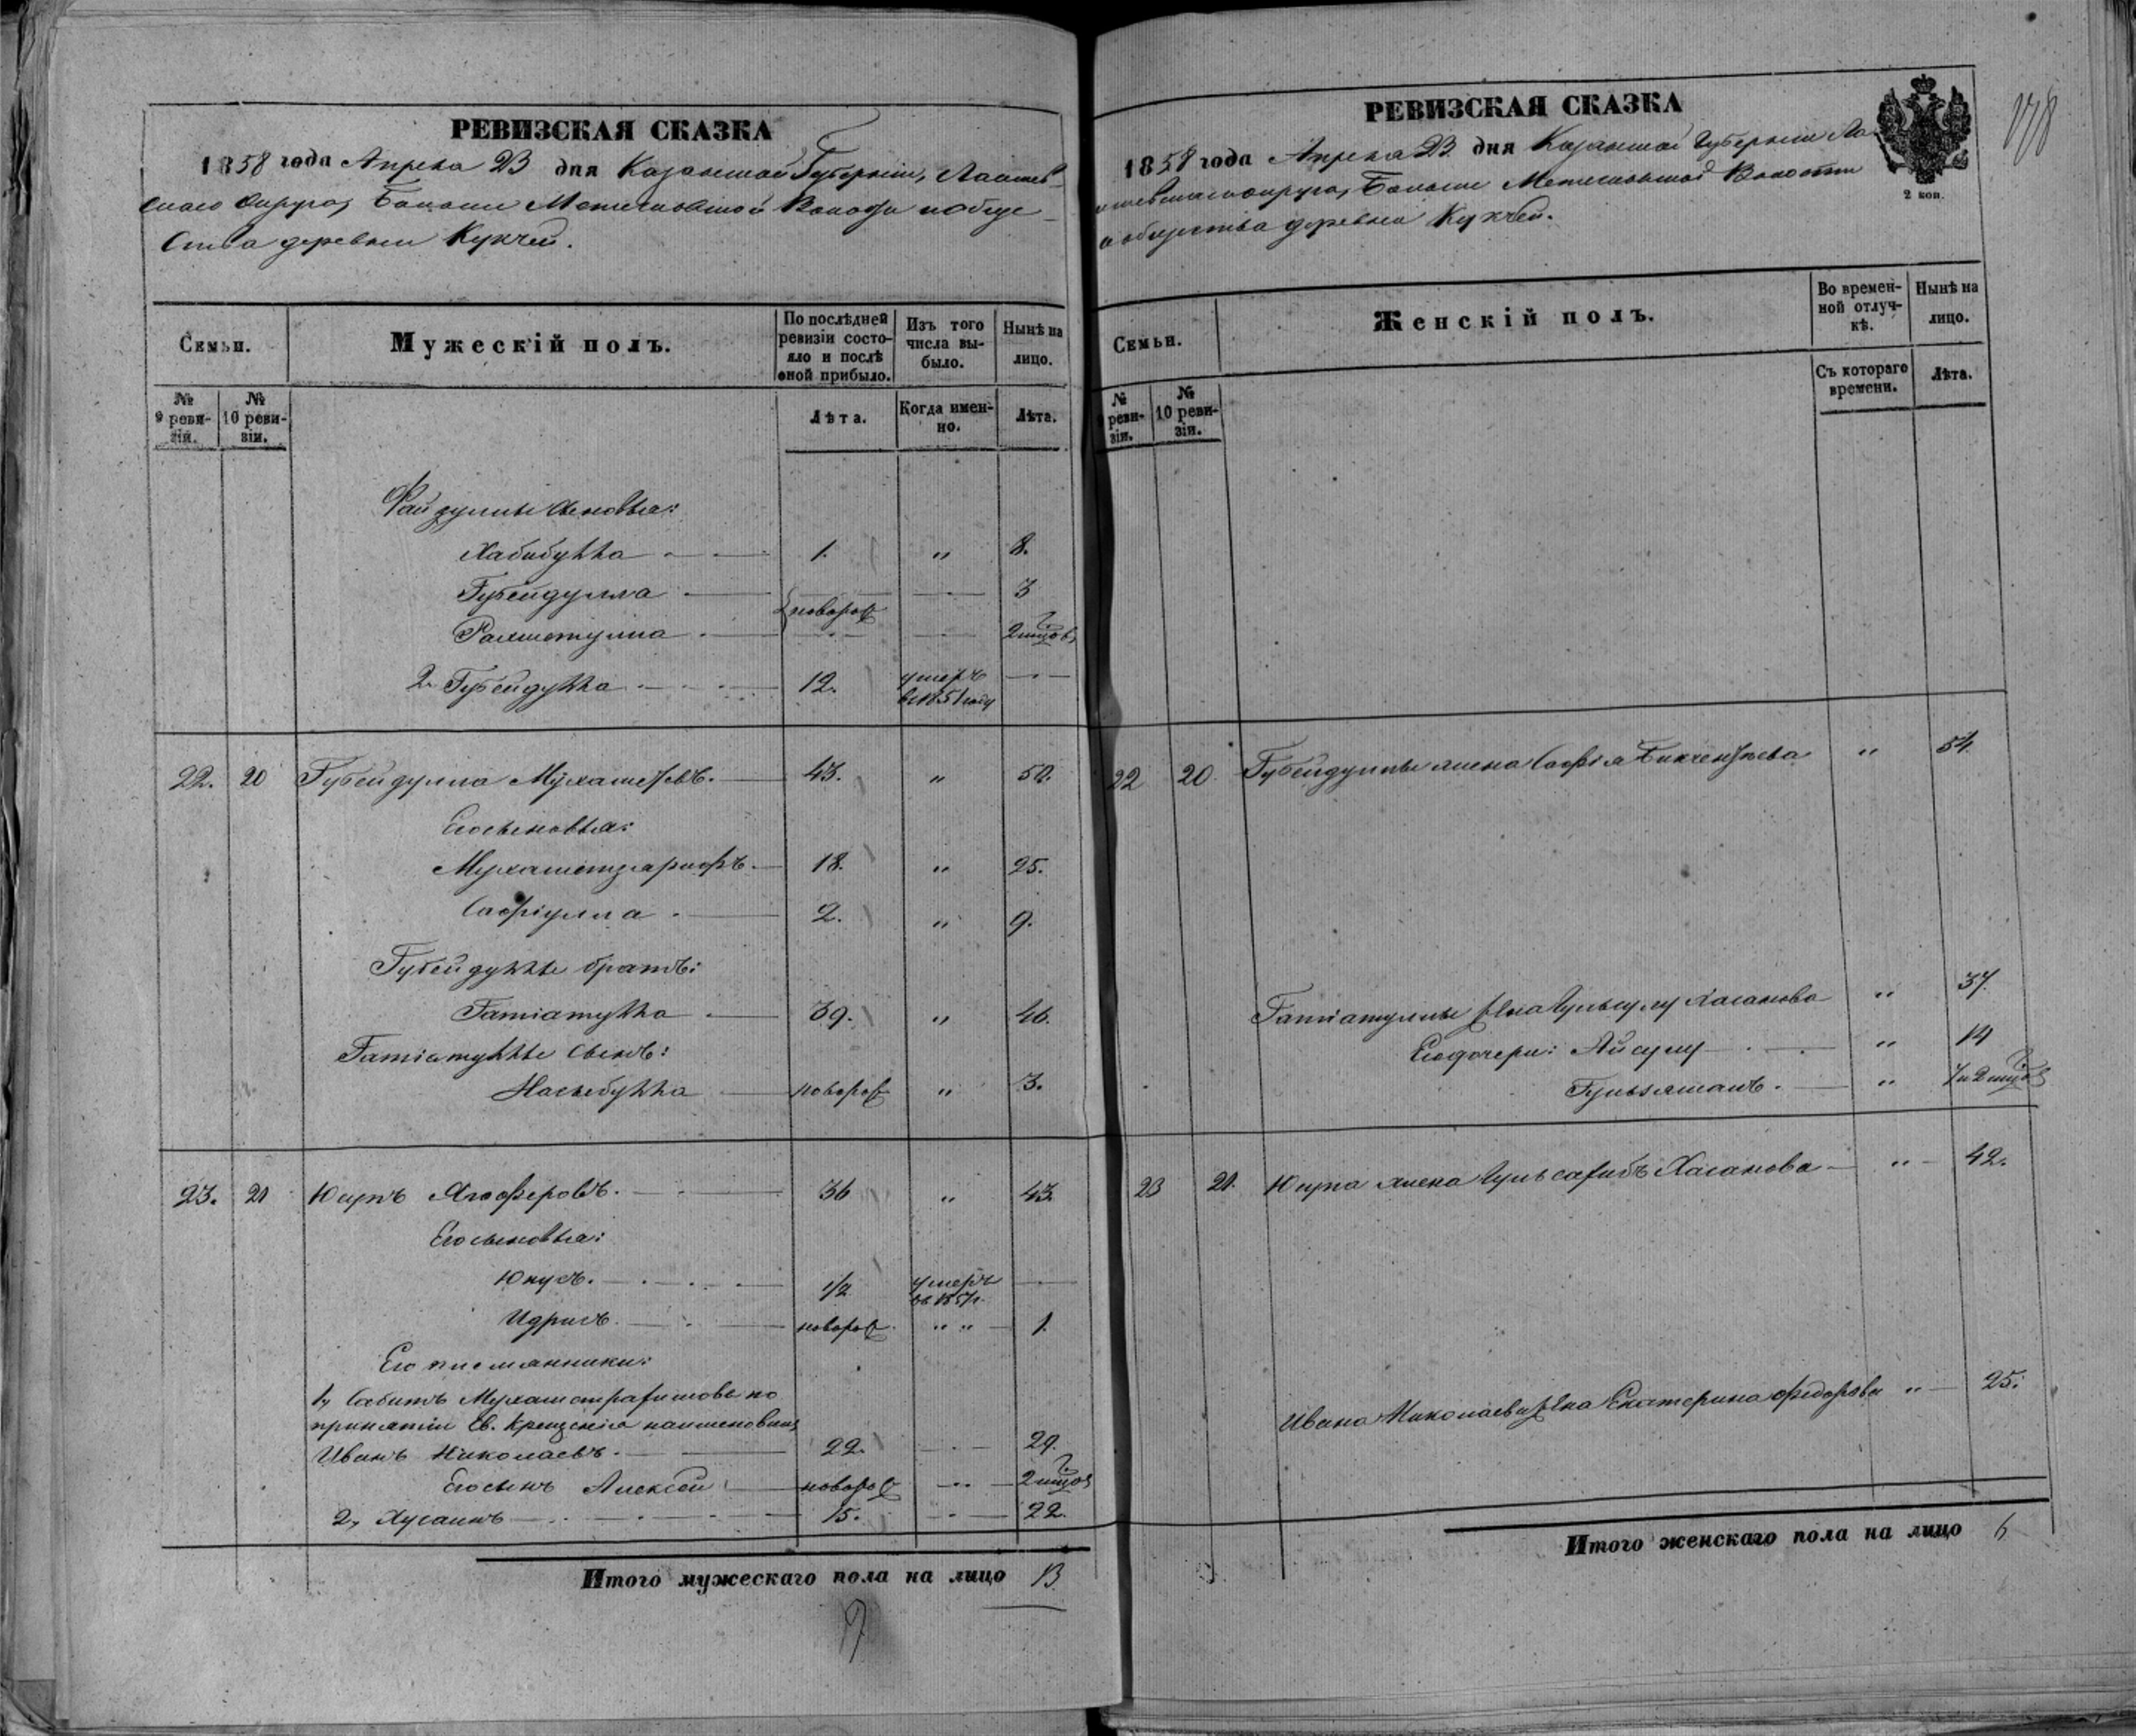 РЕВИЗСКАЯ СКАЗКА
1858 года Апреля 23 дня Казанской Губернiи, Лаишев-
скаго Округа, Больше Метескинской Волости и обще-
ства деревни Кукчей.
Семьи.
Мужескiй полъ.
По послѣдней ревизiи состояло и послѣ оной прибыло.
Изъ того числа выбыло.
Нынѣ на лицо.
№ 9 ревизiи.
№ 10 ревизiи.
Лѣта.
Когда именно.
Лѣта.
Файзуллы сыновья:
Хабибулла 1. " 8.
Губейдулла 3
новорож
Рахметулла 2 мѣсяцов
2. Губейдулла 12. умеръ въ 1851 году
22. 20 Губейдулла Мухаметевъ. 43. " 50.
Его сыновья:
Мухаметзарифъ. 18. " 25.
Сафiулла 2. " 9.
Губейдуллы братъ:
Гатiатулла 39. " 46.
Гатiатуллы сынъ:
Насыбулла новорож " 3.
23. 21 Юсупъ Ягоферовъ. 36 " 43.
Его сыновья:
Юнусъ. 1/2 умеръ въ 1857 г.
Идрисъ. новорож " " 1.
Его племянники:
1, Сабитъ Мухаметрахимовъ по
принятiи Св. Крещенiя наименованъ
Иванъ Николаевъ. 22. 29.
Его сынъ Алексѣй новорож 2 мѣсяцов
2, Хусаинъ 15. 22.
Итого мужескаго пола на лицо 13
РЕВИЗСКАЯ СКАЗКА
178
1858 года Апреля 23 дня Казанской Губернiи Ла-
ишевскаго округа, Больше Метескинской Волости
и общества деревни Кукчей.
2 коп.
Семьи.
Женскiй полъ.
Во временной отлучкѣ.
Нынѣ на лицо.
№ 9 ревизiи.
№ 10 ревизiи.
Съ котораго времени.
Лѣта.
22 20. Губейдуллы жена Сафiя Бикчентаева " 54
Гатiатуллы жена Гульсулу Хасанова " 37.
Его дочери: Айсулу " 14
Гульзяманъ. "
23 21. Юсупа жена Хасанова " 42.
Ивана Николаева жена Екатерина Федорова " 25.
Итого женскаго пола на лицо 6